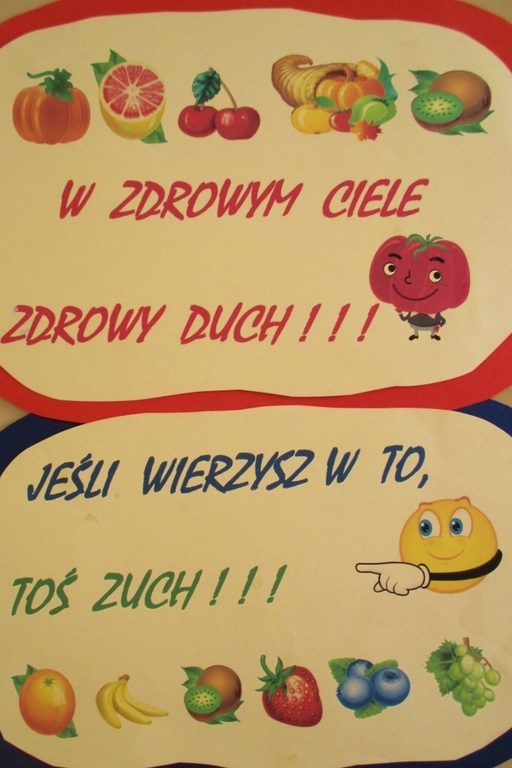 W ZDROWYM CIELE
ZDROWY DUCH!!!
JEŚLI WIERZYSZ W TO,
TOŚ ZUCH!!!